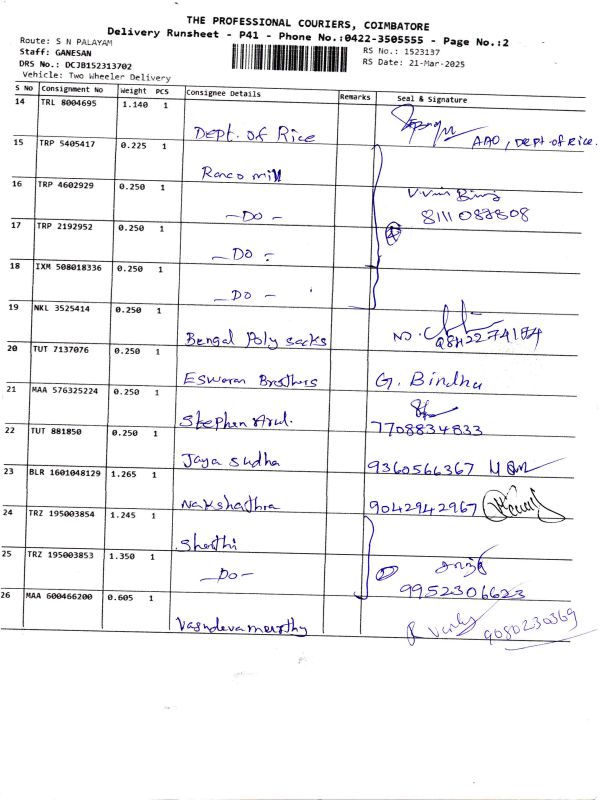 THE PROFESSIONAL COURIERS, COIMBATORE
Delivery Runsheet - P41 - Phone No.:0422-3505555 - Page No.:2
Route: S N PALAYAM
Staff: GANESAN
DRS No.: DCJB152313702
Vehicle: Two Wheeler Delivery
RS No.: 1523137
RS Date: 21-Mar-2025
S No Consignment No Weight PCS Consignee Details Remarks Seal & Signature
14 TRL 8004695 1.140 1 Dept. of Rice AAO, Dept of Rice.
15 TRP 5405417 0.225 1 Ranco mill
16 TRP 4602929 0.250 1 -Do- 8111087808
17 TRP 2192952 0.250 1 -Do-
18 IXM 508018336 0.250 1 -Do-
19 NKL 3525414 0.250 1 Bengal Poly sacks
20 TUT 7137076 0.250 1 Eswaran Brothers G. Bindhu
21 MAA 576325224 0.250 1 Stephen Arul. 7708834833
22 TUT 881850 0.250 1 Jaya sudha 9360566367
23 BLR 1601048129 1.265 1 Nakshathra 9042942967
24 TRZ 195003854 1.245 1 Shanthi
25 TRZ 195003853 1.350 1 -Do- 9952306623
26 MAA 600466200 0.605 1 Vasudevamurthy 9080230369